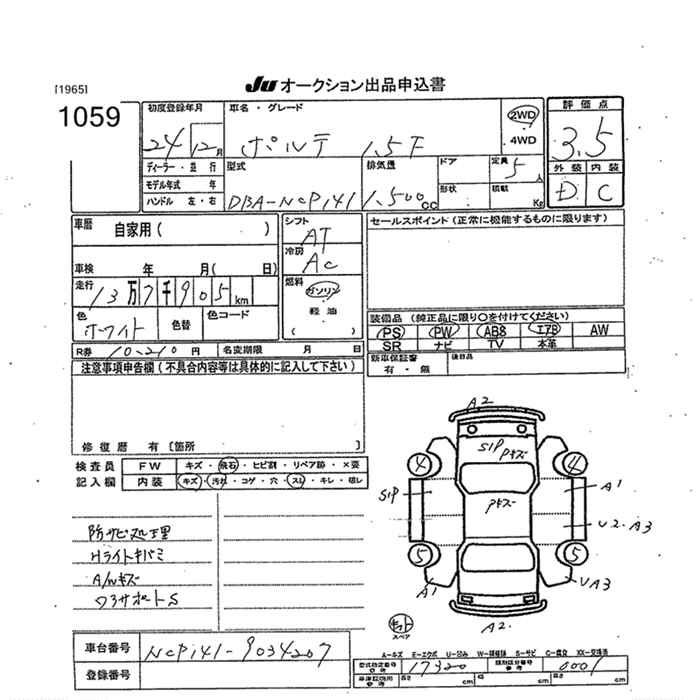 [1965]
JU オークション出品申込書
1059
初度登録年月
24 年 12 月
車名・グレード
ポルテ 1.5F
2WD
・
4WD
評価点
3.5
ディーラー・並 行
モデル年式 年
ハンドル 左・右
型式
DBA-NCP141
排気量
1,500 CC
ドア
形状
定員
5 人
積載
Kg
外装 内装
D C
車歴
自家用( )
車検 年 月( 日)
走行
13万7千905 km
色
ホワイト
色替
色コード
シフト
AT
冷房
AC
燃料
ガソリン
軽油
( )
セールスポイント(正常に機能するものに限ります)
装備品(純正品に限り○を付けてください)
PS PW ABS エアB AW
SR ナビ TV 本革
新車保証書
有・無
後日品
R券 10,210 円 名変期限 月 日
注意事項申告欄(不具合内容等は具体的に記入して下さい)
修復歴 有[箇所 ]
検査員
記入欄
FW キズ・飛石・ヒビ割・リペア跡・×要
内装 キズ・汚れ・コゲ・穴・スレ・キレ・破レ
防サビ処理
Hライトキバミ
A/Wキズ
コアサポートS
A2
S1P
Pキズ
4 4
S1P
Pキズ
A1
U2・A3
5 5
A1
UA3
A2
スペア
A-キズ E-エクボ U-凹み W-補修跡 S-サビ C-腐食 XX-交換済
車台番号 NCP141-9034207
登録番号
型式指定番号 参考
17320
類別区分番号 参考
0001
車庫証明用 参考
長さ cm 幅 cm 高さ cm